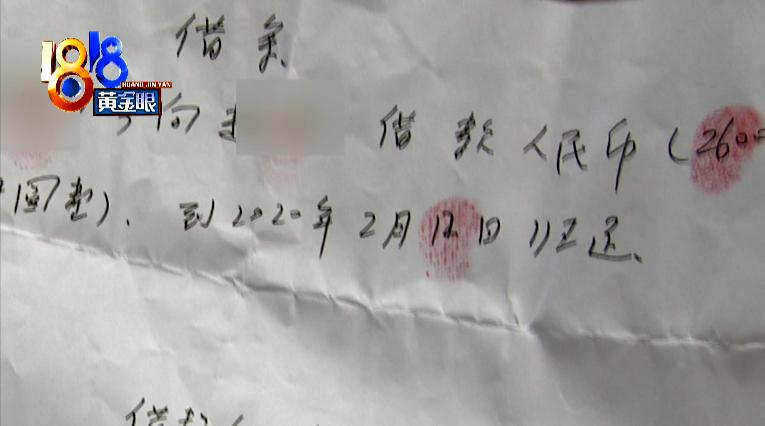 1818
HUANG JIN YAN
黄金眼
借条
向
借款人民币(2600
圆整)、到2020年2月12日归还、
借款